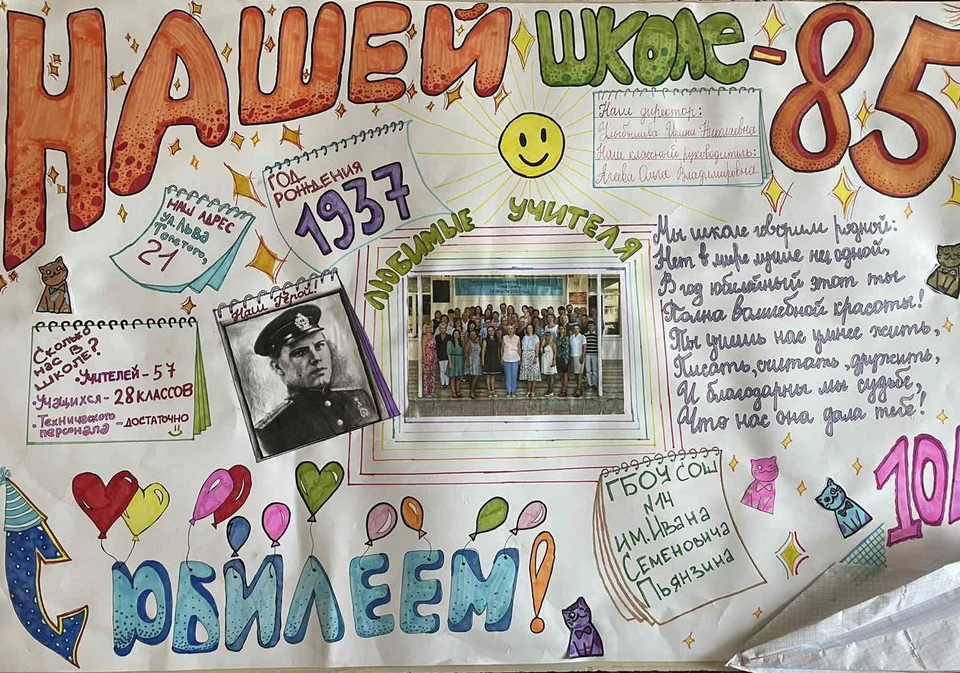 НАШЕЙ ШКОЛЕ - 85
Наш директор:
Улыбышева Ирина Николаевна
Наш классный руководитель:
Агеева Ольга Владимировна
ГОД
РОЖДЕНИЯ
1937
НАШ АДРЕС
ул. Льва
Толстого,
21
ЛЮБИМЫЕ УЧИТЕЛЯ
Наш Герой!
Сколько
нас в
школе?
• Учителей - 57
• Учащихся - 28 классов
• Технического
персонала - достаточно
Мы школе говорим родной:
Нет в мире лучше ни одной,
В год юбилейный этот ты
Полна волшебной красоты!
Ты учишь нас умнее жить,
Писать, считать, дружить,
И благодарны мы судьбе,
Что нас она дала тебе!
ГБОУ СОШ
№14
им. Ивана
Семеновича
Пьянзина
С ЮБИЛЕЕМ!